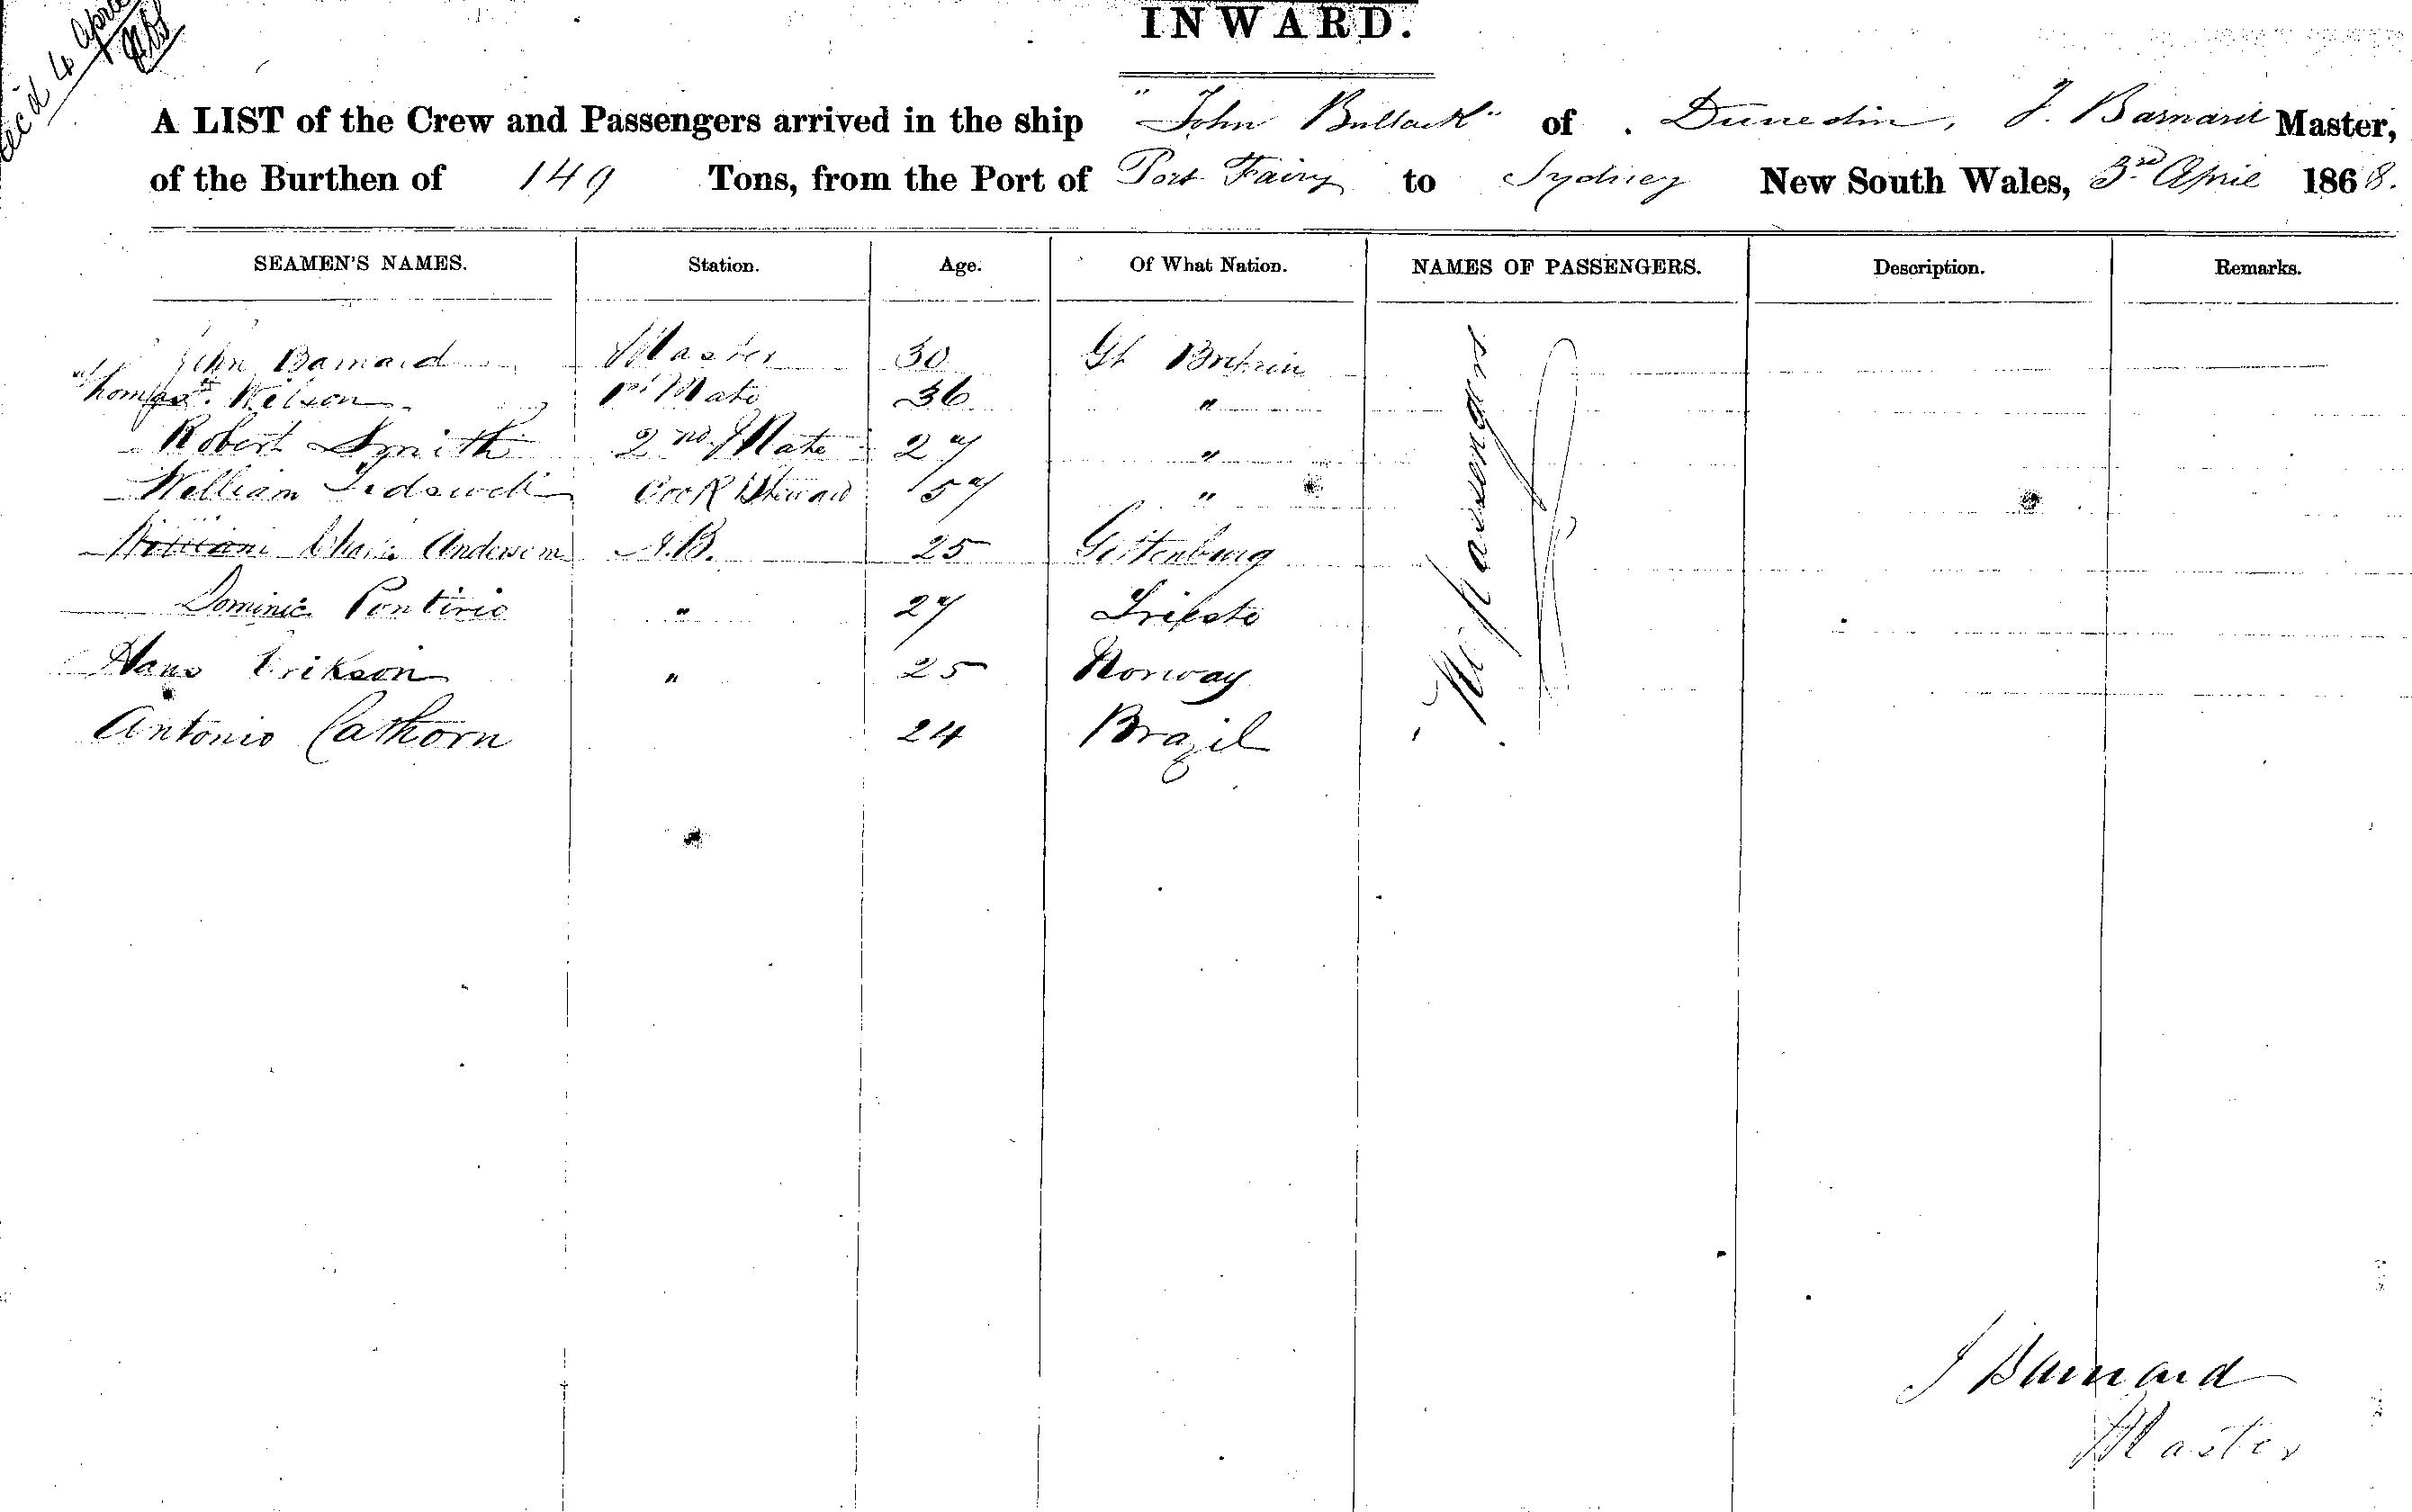 Recd 4 April
INWARD.
A LIST of the Crew and Passengers arrived in the ship "John Bullock" of Dunedin, J. Barnard Master,
of the Burthen of 149 Tons, from the Port of Port Fairy to Sydney New South Wales, 3rd April 1868.
SEAMEN'S NAMES. Station. Age. Of What Nation. NAMES OF PASSENGERS. Description. Remarks.
John Barnard Master 30 Gt Britain
Thomas Wilson 1st Mate 36 "
Robert Smith 2nd Mate 27 "
William Tidswell Cook Steward 57 "
William Chas. Anderson A.B. 25 Gottenburg
Dominic " 27 Trieste
Hans Erikson " 25 Norway
Antonio Cathorn 24 Brazil
No passengers
J Barnard
Master